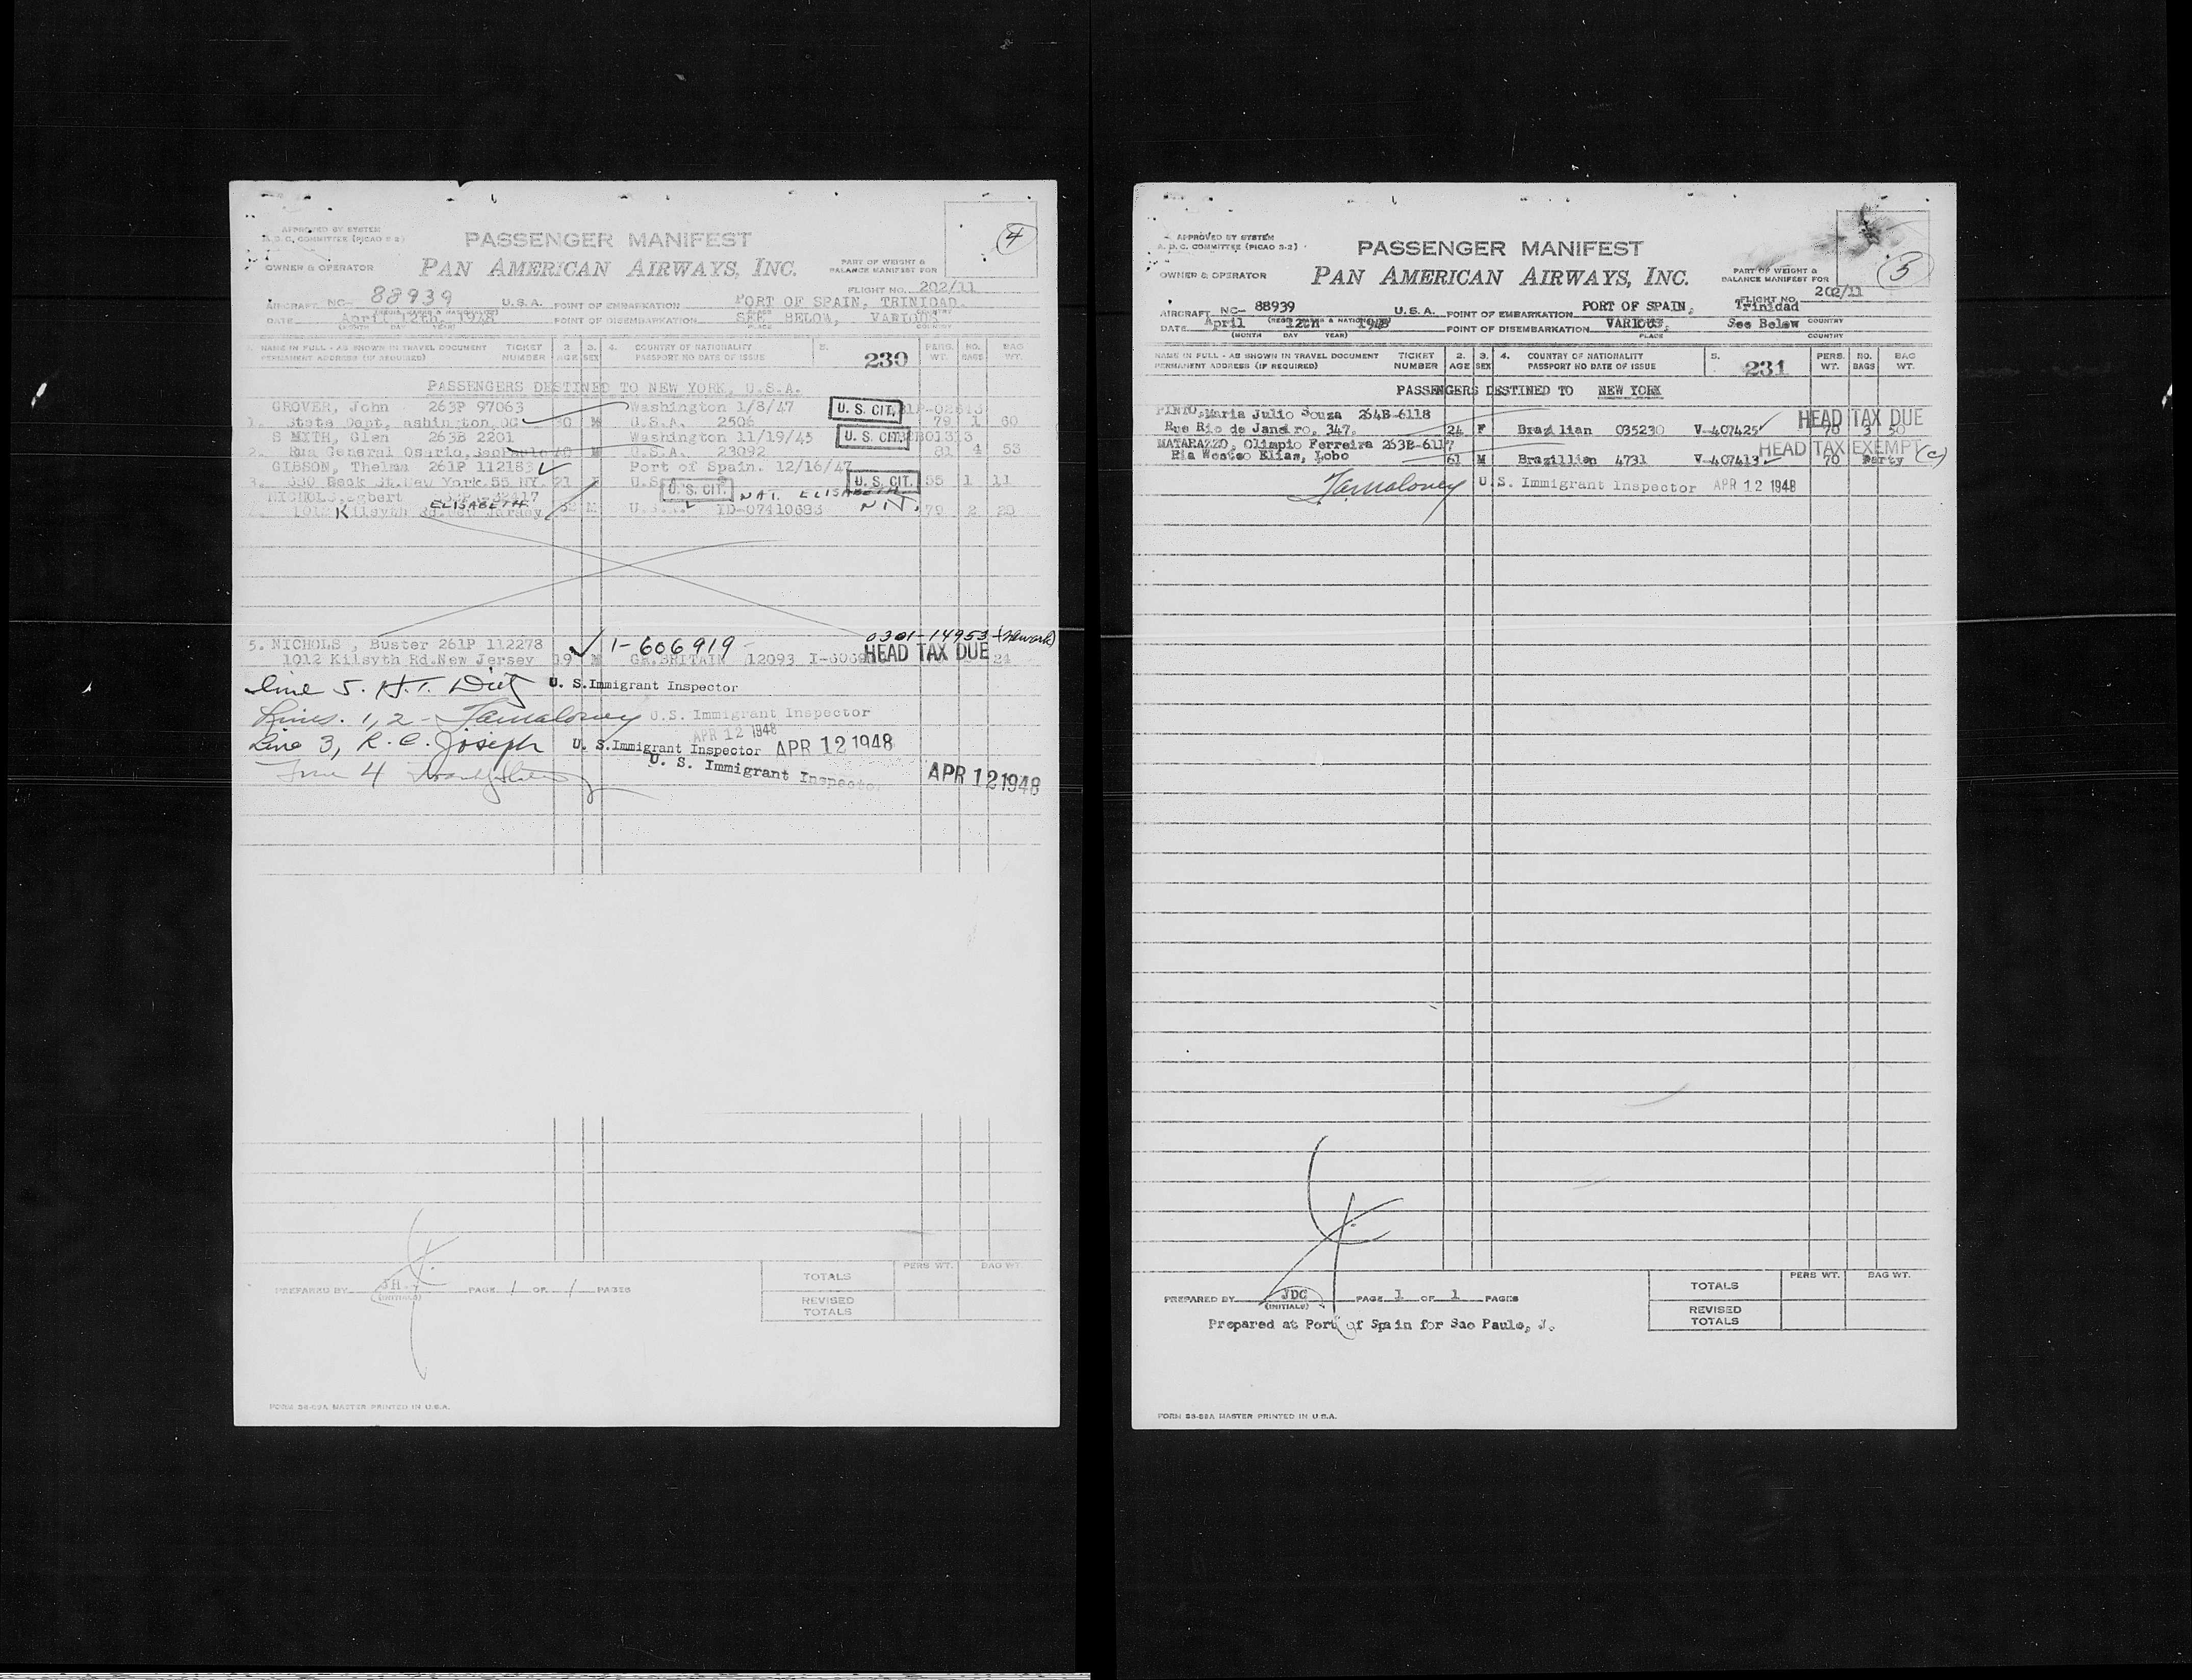 APPROVED BY SYSTEM
A. D. C. COMMITTEE (PICAO S-2)
PASSENGER MANIFEST
4
OWNER & OPERATOR
PAN AMERICAN AIRWAYS, INC.
PART OF WEIGHT &
BALANCE MANIFEST FOR
FLIGHT NO. 202/11
AIRCRAFT NC- 88939 U.S.A. POINT OF EMBARKATION PORT OF SPAIN, TRINIDAD.
DATE April 12th, 1948 POINT OF DISEMBARKATION SEE BELOW, VARIOUS
(MONTH DAY YEAR) PLACE COUNTRY
NAME IN FULL - AS SHOWN IN TRAVEL DOCUMENT TICKET 2. 3. 4. COUNTRY OF NATIONALITY 5. 230 PERS. NO. BAG
PERMANENT ADDRESS (IF REQUIRED) NUMBER AGE SEX PASSPORT NO DATE OF ISSUE WT. BAGS WT.
PASSENGERS DESTINED TO NEW YORK, U.S.A.
GROVER, John 263P 97063 Washington 1/8/47 U. S. CIT.
1. State Dept, ashington DC M U.S.A. 2506 79 1 60
S MYTH, Glen 263B 2201 Washington 11/19/45 U. S. CIT.
2. Rua General Osario, M U.S.A. 23092 81 4 53
GIBSON, Thelma 261P 112183 Port of Spain. 12/16/47
3. 330 Back St. New York 55 NY. 21 U.S. U. S. CIT. 55 1 11
NICHOLS, Egbert U. S. CIT. NAT. ELISABETH
1012 Kilsyth Rd. New Jersey ELISABETH M U.S.A. ID-07410683 N.J. 79 2 20
5. NICHOLS , Buster 261P 112278 1-606919 - 0301-14953 (Newark)
1012 Kilsyth Rd.New Jersey 19 M GR.BRITAIN 12093 HEAD TAX DUE 24
Line 5. H.T. U. S.Immigrant Inspector
Lines. 1, 2 - Jamaloney U.S. Immigrant Inspector
APR 12 1948
Line 3, R. C. Joseph U. S.Immigrant Inspector APR 12 1948
Line 4 U. S. Immigrant Inspector APR 12 1948
PREPARED BY J.H. PAGE 1 OF 1 PAGES
(INITIALS)
PERS WT. BAG WT
TOTALS
REVISED
TOTALS
FORM SS-59A MASTER PRINTED IN U.S.A.
APPROVED BY SYSTEM
A. D. C. COMMITTEE (PICAO S-2)
PASSENGER MANIFEST
3
OWNER & OPERATOR
PAN AMERICAN AIRWAYS, INC.
PART OF WEIGHT &
BALANCE MANIFEST FOR
FLIGHT NO. 202/11
AIRCRAFT NC- 88939 U.S.A. POINT OF EMBARKATION PORT OF SPAIN, Trinidad
DATE April 12th 1948 POINT OF DISEMBARKATION VARIOUS, See Below COUNTRY
(MONTH DAY YEAR) PLACE COUNTRY
NAME IN FULL - AS SHOWN IN TRAVEL DOCUMENT TICKET 2. 3. 4. COUNTRY OF NATIONALITY 5. 231 PERS. NO. BAG
PERMANENT ADDRESS (IF REQUIRED) NUMBER AGE SEX PASSPORT NO DATE OF ISSUE WT. BAGS WT.
PASSENGERS DESTINED TO NEW YORK
PINTO, Maria Julio Souza 264B-6118 HEAD TAX DUE
Rue Rio de Janeiro, 347. 24 F Brazilian 035230 V-407425 70 3 50
MATARAZZO, Olimpio Ferreira 263B-6117 HEAD TAX EXEMPT (c)
Ria Westeo Elias, Lobo 61 M Brazillian 4731 V-407413 70 Party
Jamaloney U.S. Immigrant Inspector APR 12 1948
PREPARED BY JDC PAGE 1 OF 1 PAGES
(INITIALS)
Prepared at Port of Spain for Sao Paulo, J.
PERS WT. BAG WT.
TOTALS
REVISED
TOTALS
FORM SS-59A MASTER PRINTED IN U.S.A.